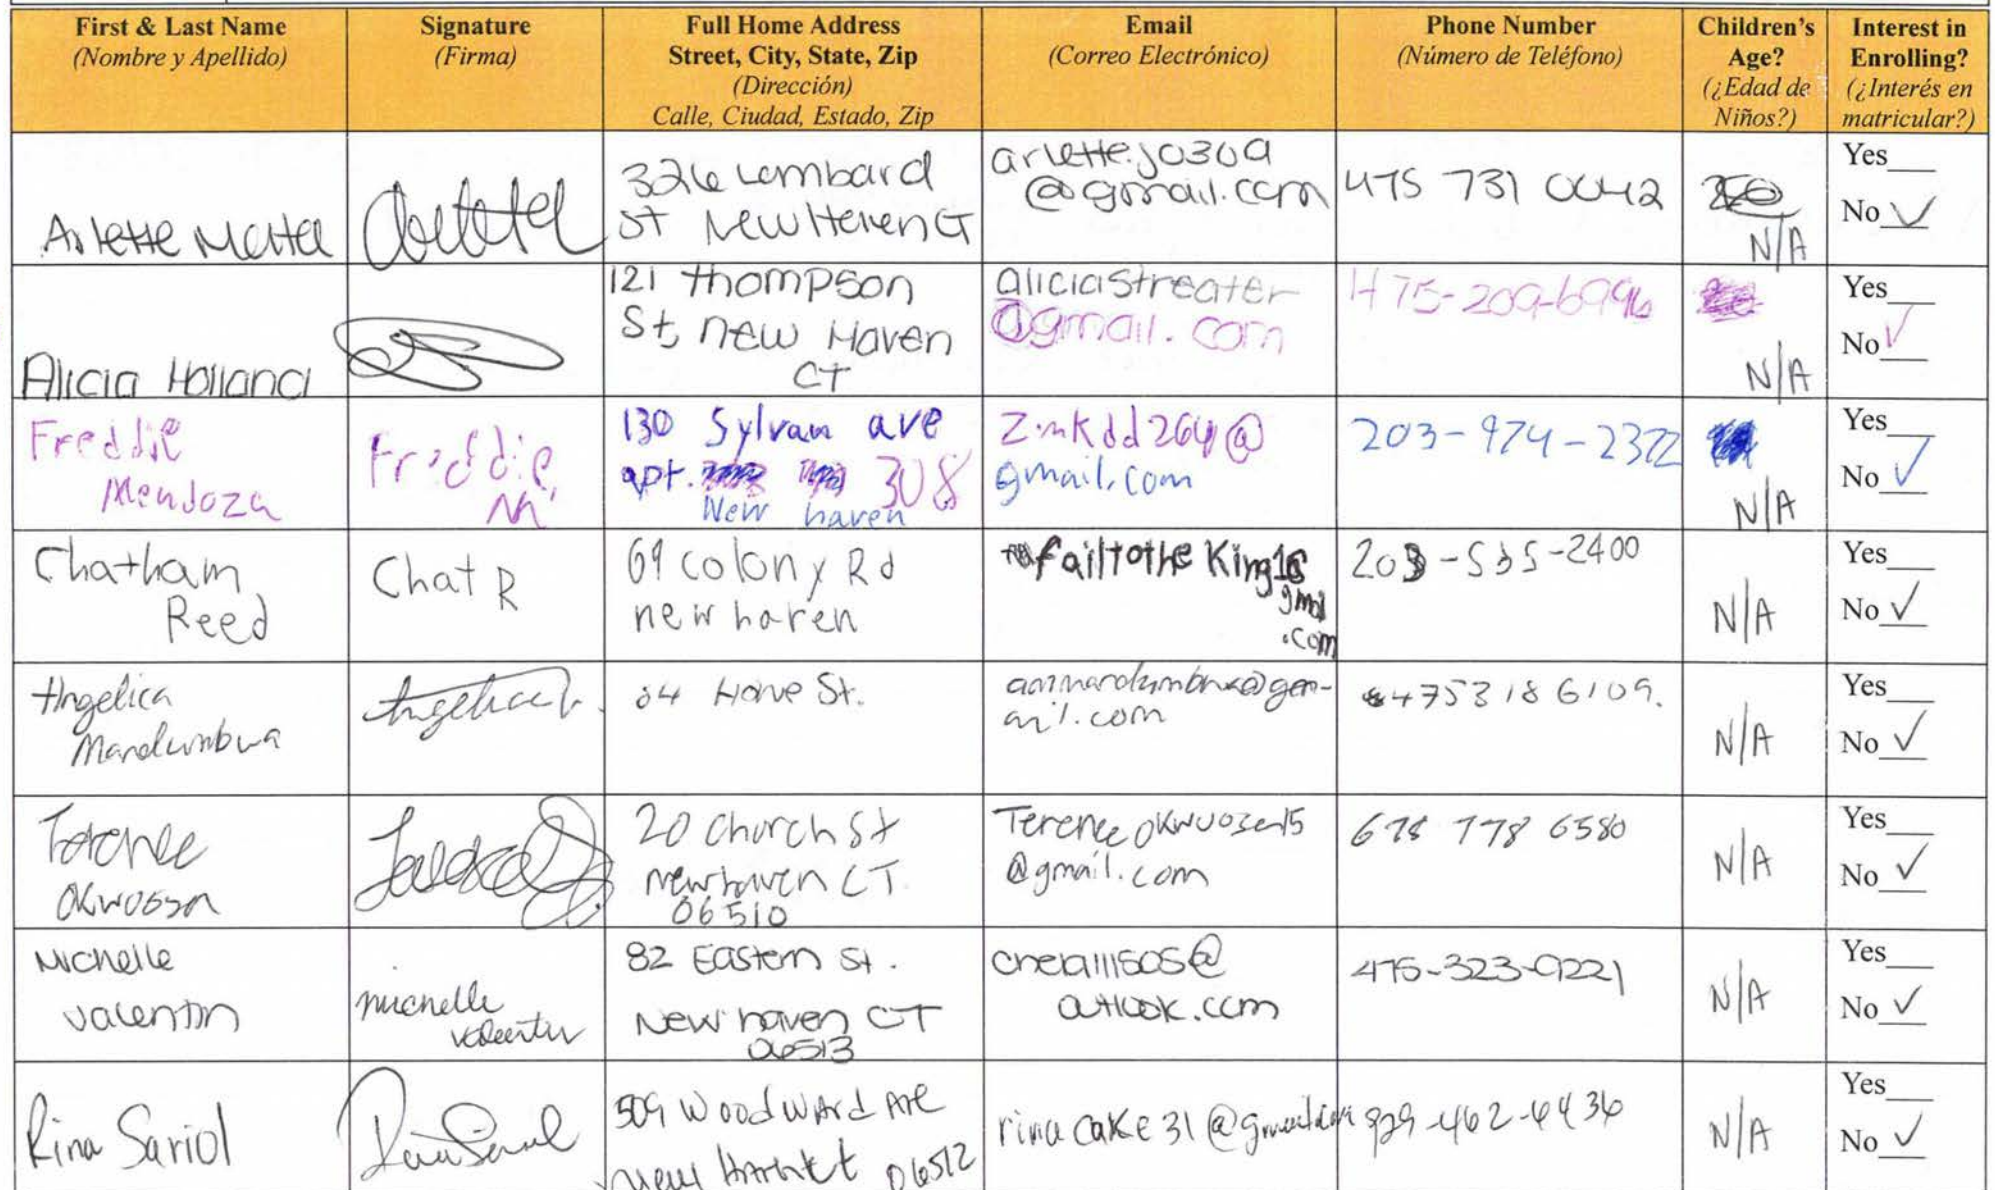 First & Last Name
(Nombre y Apellido)
Signature
(Firma)
Full Home Address
Street, City, State, Zip
(Dirección)
Calle, Ciudad, Estado, Zip
Email
(Correo Electrónico)
Phone Number
(Número de Teléfono)
Children's
Age?
(¿Edad de
Niños?)
Interest in
Enrolling?
(¿Interés en
matricular?)
Arlette
326 Lombard
St New Haven CT
@gmail.com
475 731 0042
N/A
Yes
No ✓
Alicia Holland
121 Thompson
St, New Haven
CT
aliciastreater
@gmail.com
475-209-6996
N/A
Yes
No ✓
Freddie
Mendoza
Freddie
M
130 Sylvan ave
apt. 308
New haven
gmail.com
203-974-2372
N/A
Yes
No ✓
Chatham
Reed
Chat R
69 colony Rd
new haven
.com
203-535-2400
N/A
Yes
No ✓
Angelica
Mandumbwa
Howe St.
475 318 6109.
N/A
Yes
No ✓
Terence
20 Church St
new haven CT
06510
Terence
@gmail.com
678 778 6580
N/A
Yes
No ✓
Michelle
Valentin
Michelle
Valentin
82 Eastern St.
New haven CT
06513
outlook.com
475-323-9221
N/A
Yes
No ✓
Rina Sariol
Rina Sariol
509 Woodward Ave
New 06512
rinacake31@gmail.com
N/A
Yes
No ✓